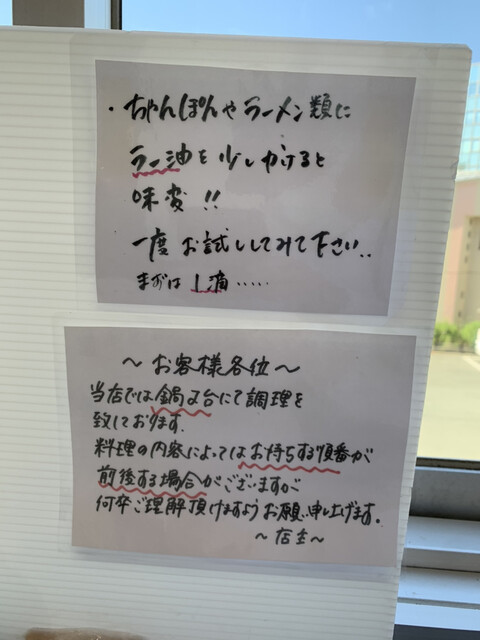 ・ちゃんぽんやラーメン類に
ラー油を少しかけると
味変!!
一度お試ししてみて下さい..
まずは1滴.....
〜お客様各位〜
当店では鍋2台にて調理を
致しております.
料理の内容によってはお待ちする順番が
前後する場合がございますが
何卒ご理解頂けますようお願い申し上げます.
〜店主〜